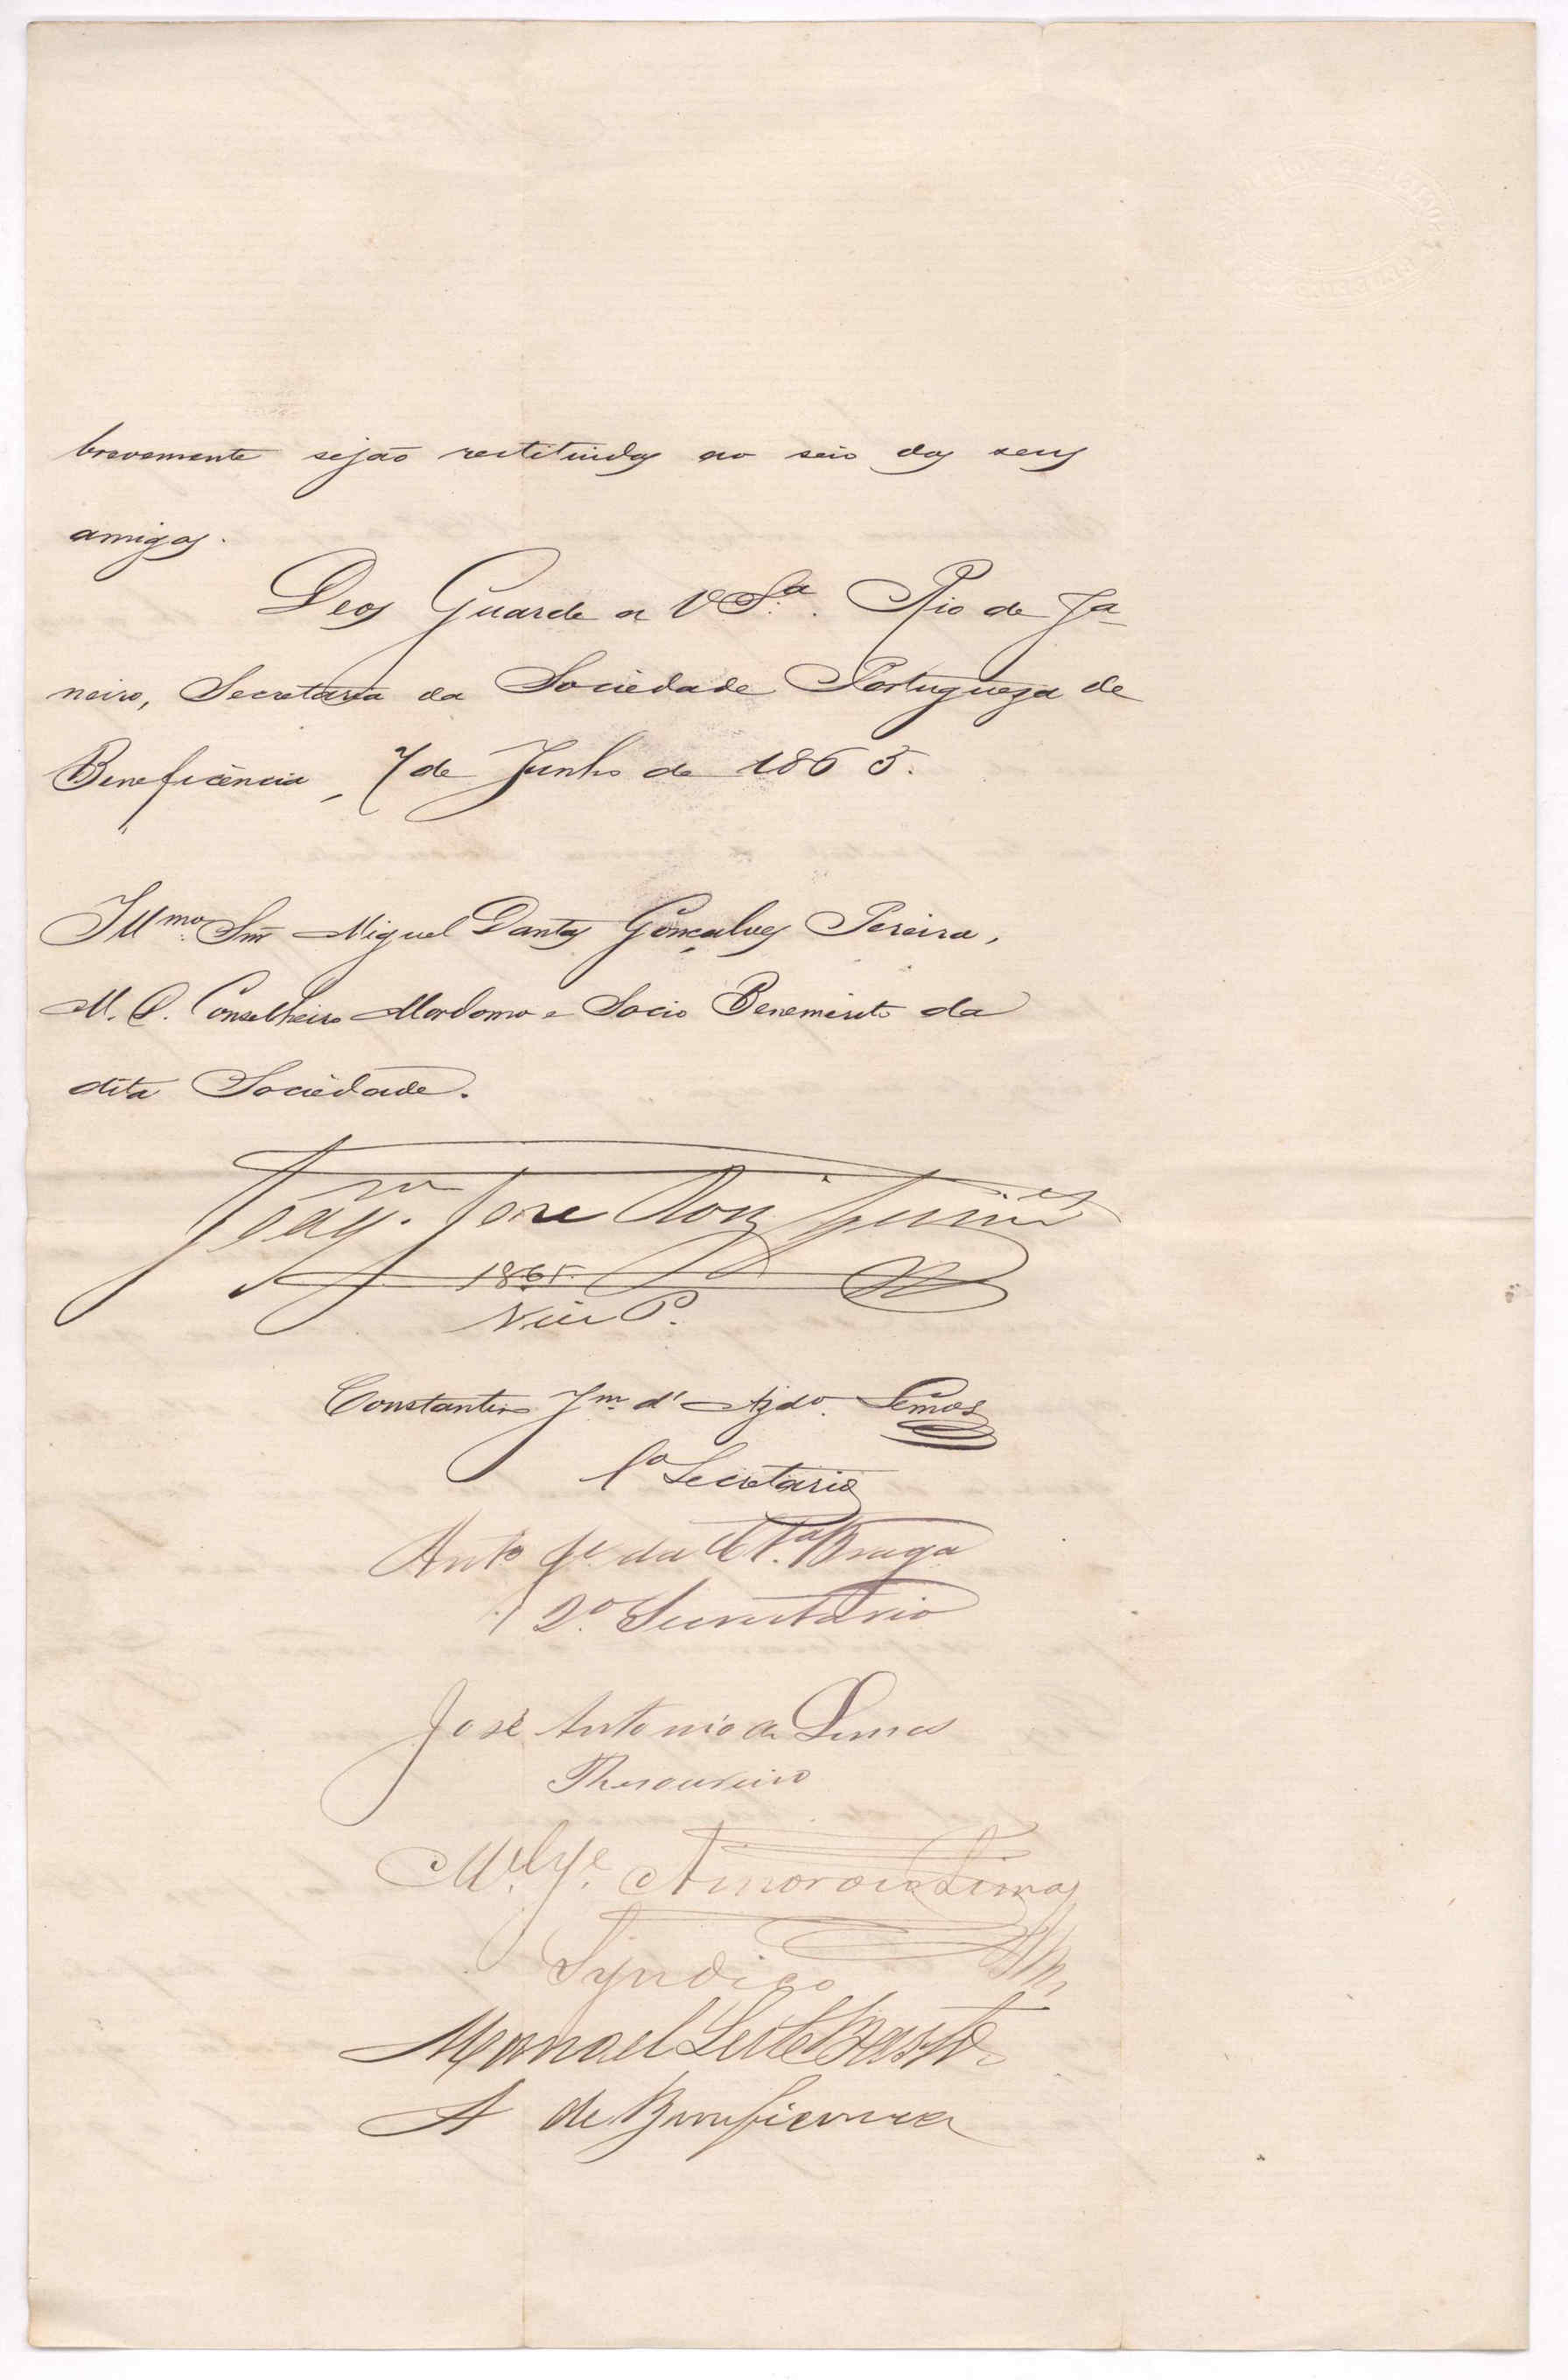 brevemente sejão restituidos ao seio dos seus
amigos.
Deos Guarde a V. S.ª. Rio de Ja-
neiro, Secretaria da Sociedade Portugueza de
Beneficência, 7 de Junho de 1865.
Illmo. Snr. Miguel Dantas Gonçalves Pereira,
M. D. Conselheiro Mordomo e Socio Benemérito da
dita Sociedade.
José
1865.
Vice P.
Constantino Jm. d' Azdo. Lemos
1º Secretario
Anto. da Braga
2º. Secretario
José Antonio de Lemos
Thesoureiro
Mel. Je. Amoroso Lima
Syndico
Manoel Leite Bastos
A de Beneficencia